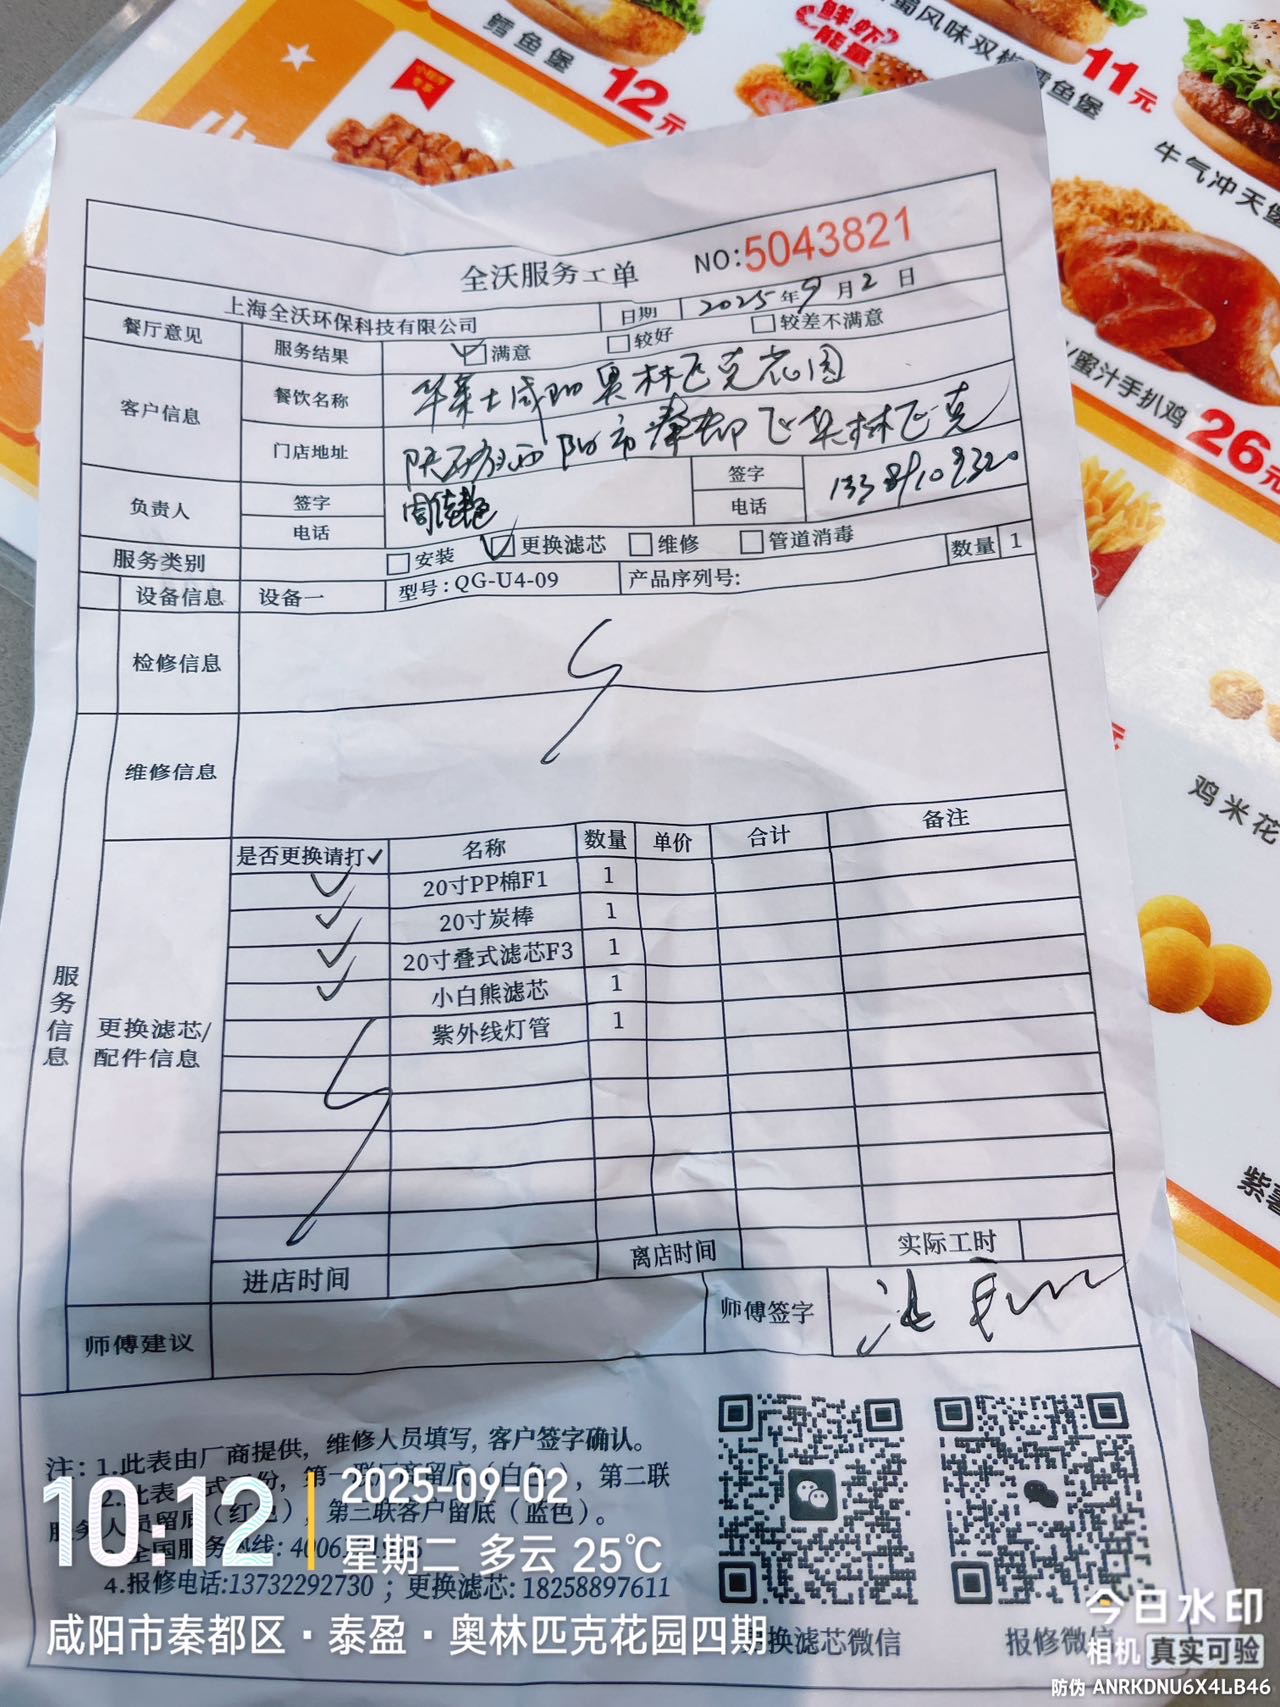 鳕鱼堡
12元
鲜虾
能量
蜀风味双椒鳕鱼堡
11元
牛气冲天堡
蜜汁手扒鸡
26元
鸡米花
紫薯
全沃服务工单
NO:5043821
上海全沃环保科技有限公司
日期
2025年9月2日
餐厅意见
服务结果
满意
较好
较差不满意
客户信息
餐饮名称
华莱士咸阳奥林匹克花园
门店地址
陕西省咸阳市秦都区奥林匹克
负责人
签字
电话
签字
电话
服务类别
安装
更换滤芯
维修
管道消毒
数量
1
设备信息
设备一
型号:QG-U4-09
产品序列号:
检修信息
维修信息
服务信息
更换滤芯/
配件信息
是否更换请打✓ 名称 数量 单价 合计 备注
✓ 20寸PP棉F1 1
✓ 20寸炭棒 1
✓ 20寸叠式滤芯F3 1
✓ 小白熊滤芯 1
紫外线灯管 1
进店时间
离店时间
实际工时
师傅建议
师傅签字
注：1.此表由厂商提供, 维修人员填写, 客户签字确认。
第二联
第三联客户留底（蓝色）。
4.报修电话:13732292730；更换滤芯: 18258897611
换滤芯微信
报修微信
10:12
2025-09-02
星期二 多云 25℃
咸阳市秦都区·泰盈·奥林匹克花园四期
今日水印
相机 真实可验
防伪 ANRKDNU6X4LB46